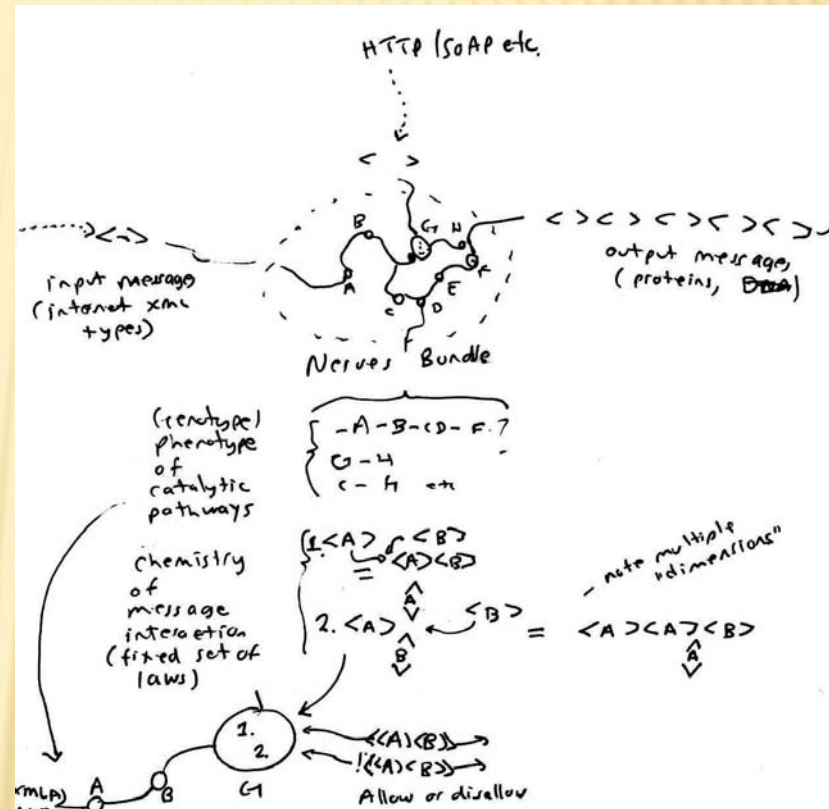 HTTP/SOAP etc.
< >
B
G
H
< - >
< > < > < > < > < >
input message
(internet xml
types)
A
C
D
E
F
output message,
(proteins, )
Nerves Bundle
(genotype)
phenotype
of
catalytic
pathways
- A - B - CD - F . ?
G - H
C - H etc
chemistry
of
message
interaction
(fixed set of
laws)
1. <A> <B>
= <A><B>
<A>
2. <A> <B> = <A><A><B>
<B>
<A>
note multiple
"dimensions"
1.
2.
<(A)<B>>
!<(A)<B>>
A
B
G
Allow or disallow